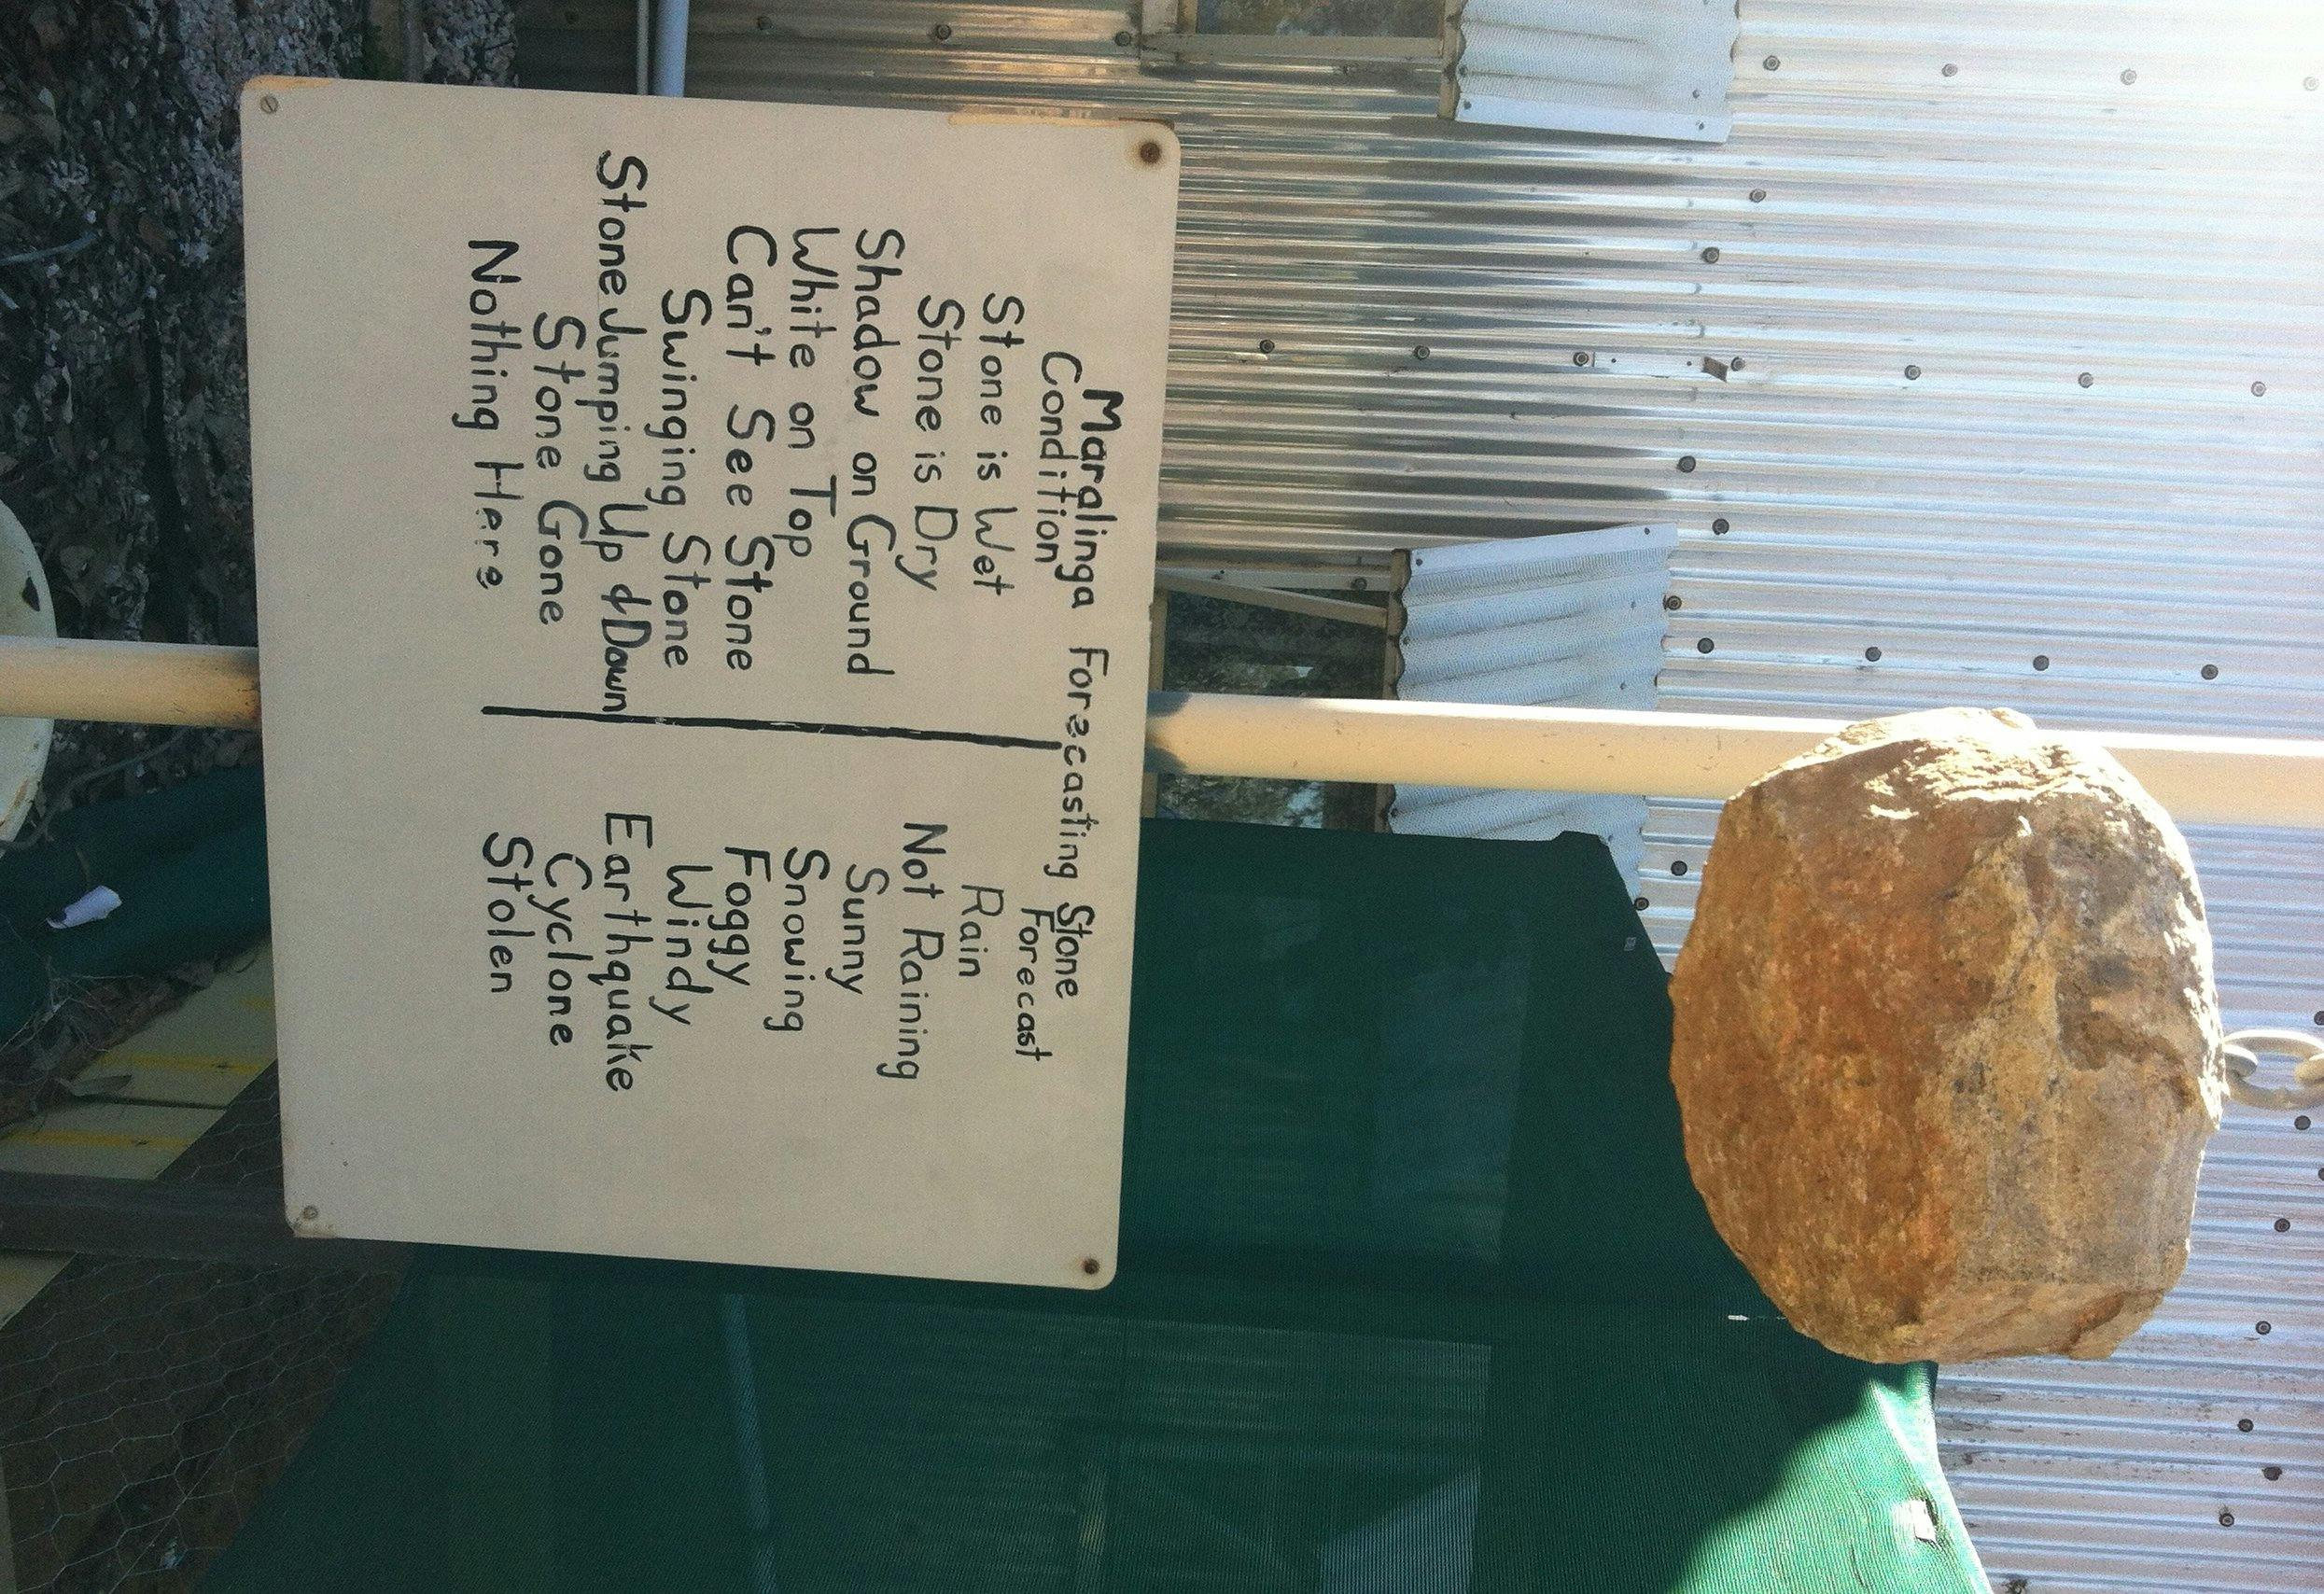 Maralinga Forecasting Stone
Condition Forecast
Stone is Wet Rain
Stone is Dry Not Raining
Shadow on Ground Sunny
White on Top Snowing
Can't See Stone Foggy
Swinging Stone Windy
Stone Jumping Up & Down Earthquake
Stone Gone Cyclone
Nothing Here Stolen